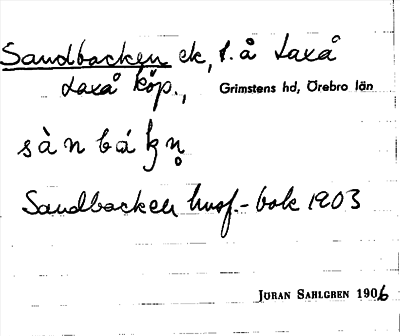 Sandbacken ek, f. å Laxå
Laxå köp., Grimstens hd, Örebro län
sànbákn̥
Sandbacken husf.-bok 1903
JÖRAN SAHLGREN 1906